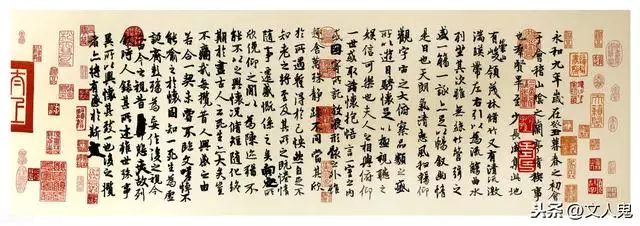 永和九年歲在癸丑暮春之初會
于會稽山陰之蘭亭脩稧事
也群賢畢至少長咸集此地
有崇山峻領茂林脩竹又有清流激
湍暎帶左右引以為流觴曲水
列坐其次雖無絲竹管弦之
盛一觴一詠亦足以暢敘幽情
是日也天朗氣清惠風和暢仰
觀宇宙之大俯察品類之盛
所以遊目騁懷足以極視聽之
娛信可樂也夫人之相與俯仰
一世或取諸懷抱悟言一室之內
或因寄所託放浪形骸之外雖
趣舍萬殊靜躁不同當其欣
於所遇暫得於己怏然自足不
知老之將至及其所之既惓情
隨事遷感慨係之矣向之所
欣俛仰之閒以為陳迹猶不
能不以之興懷況脩短隨化終
期於盡古人云死生亦大矣豈
不痛哉每攬昔人興感之由
若合一契未嘗不臨文嗟悼不
能喻之於懷固知一死生為虛
誕齊彭殤為妄作後之視今
亦由今之視昔悲夫故列
敘時人錄其所述雖世殊事
異所以興懷其致一也後之攬
者亦將有感於斯文
头条@文人鬼